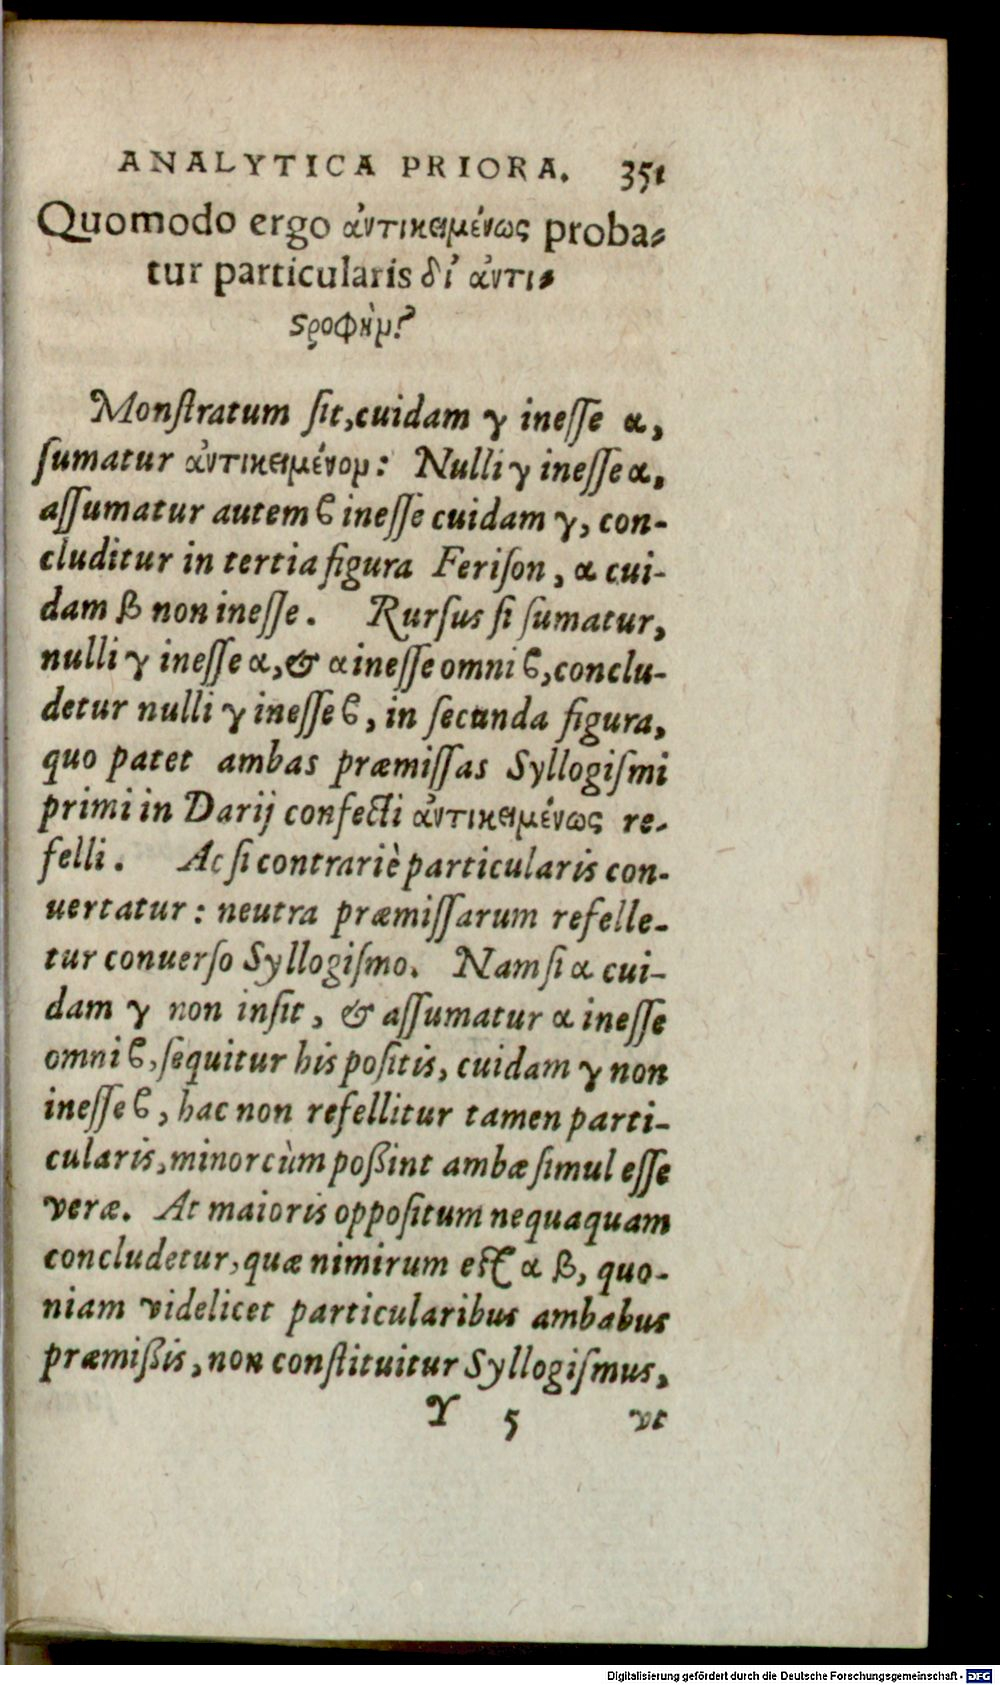 ANALYTICA PRIORA. 351
Quomodo ergo ἀντικειμένως proba-
tur particularis δι᾽ ἀντι-
ϛροφὴν?
Monſtratum ſit, cuidam γ ineſſe α,
ſumatur ἀντικειμένον: Nulli γ ineſſe α,
aſſumatur autem ϐ ineſſe cuidam γ, con-
cluditur in tertia figura Feriſon, α cui-
dam β non ineſſe. Rurſus ſi ſumatur,
nulli γ ineſſe α, & α ineſſe omni ϐ, conclu-
detur nulli γ ineſſe ϐ, in ſecunda figura,
quo patet ambas præmiſſas Syllogiſmi
primi in Darij confecti ἀντικειμένως re-
felli. Ac ſi contrariè particularis con-
uertatur: neutra præmiſſarum refelle-
tur conuerſo Syllogiſmo. Nam ſi α cui-
dam γ non inſit, & aſſumatur α ineſſe
omni ϐ, ſequitur his poſitis, cuidam γ non
ineſſe ϐ, hac non refellitur tamen parti-
cularis, minor cùm poßint ambæ ſimul eſſe
veræ. At maioris oppoſitum nequaquam
concludetur, quæ nimirum eſt α β, quo-
niam videlicet particularibus ambabus
præmißis, non conſtituitur Syllogiſmus,
Y 5 vt
Digitalisierung gefördert durch die Deutsche Forschungsgemeinschaft - DFG